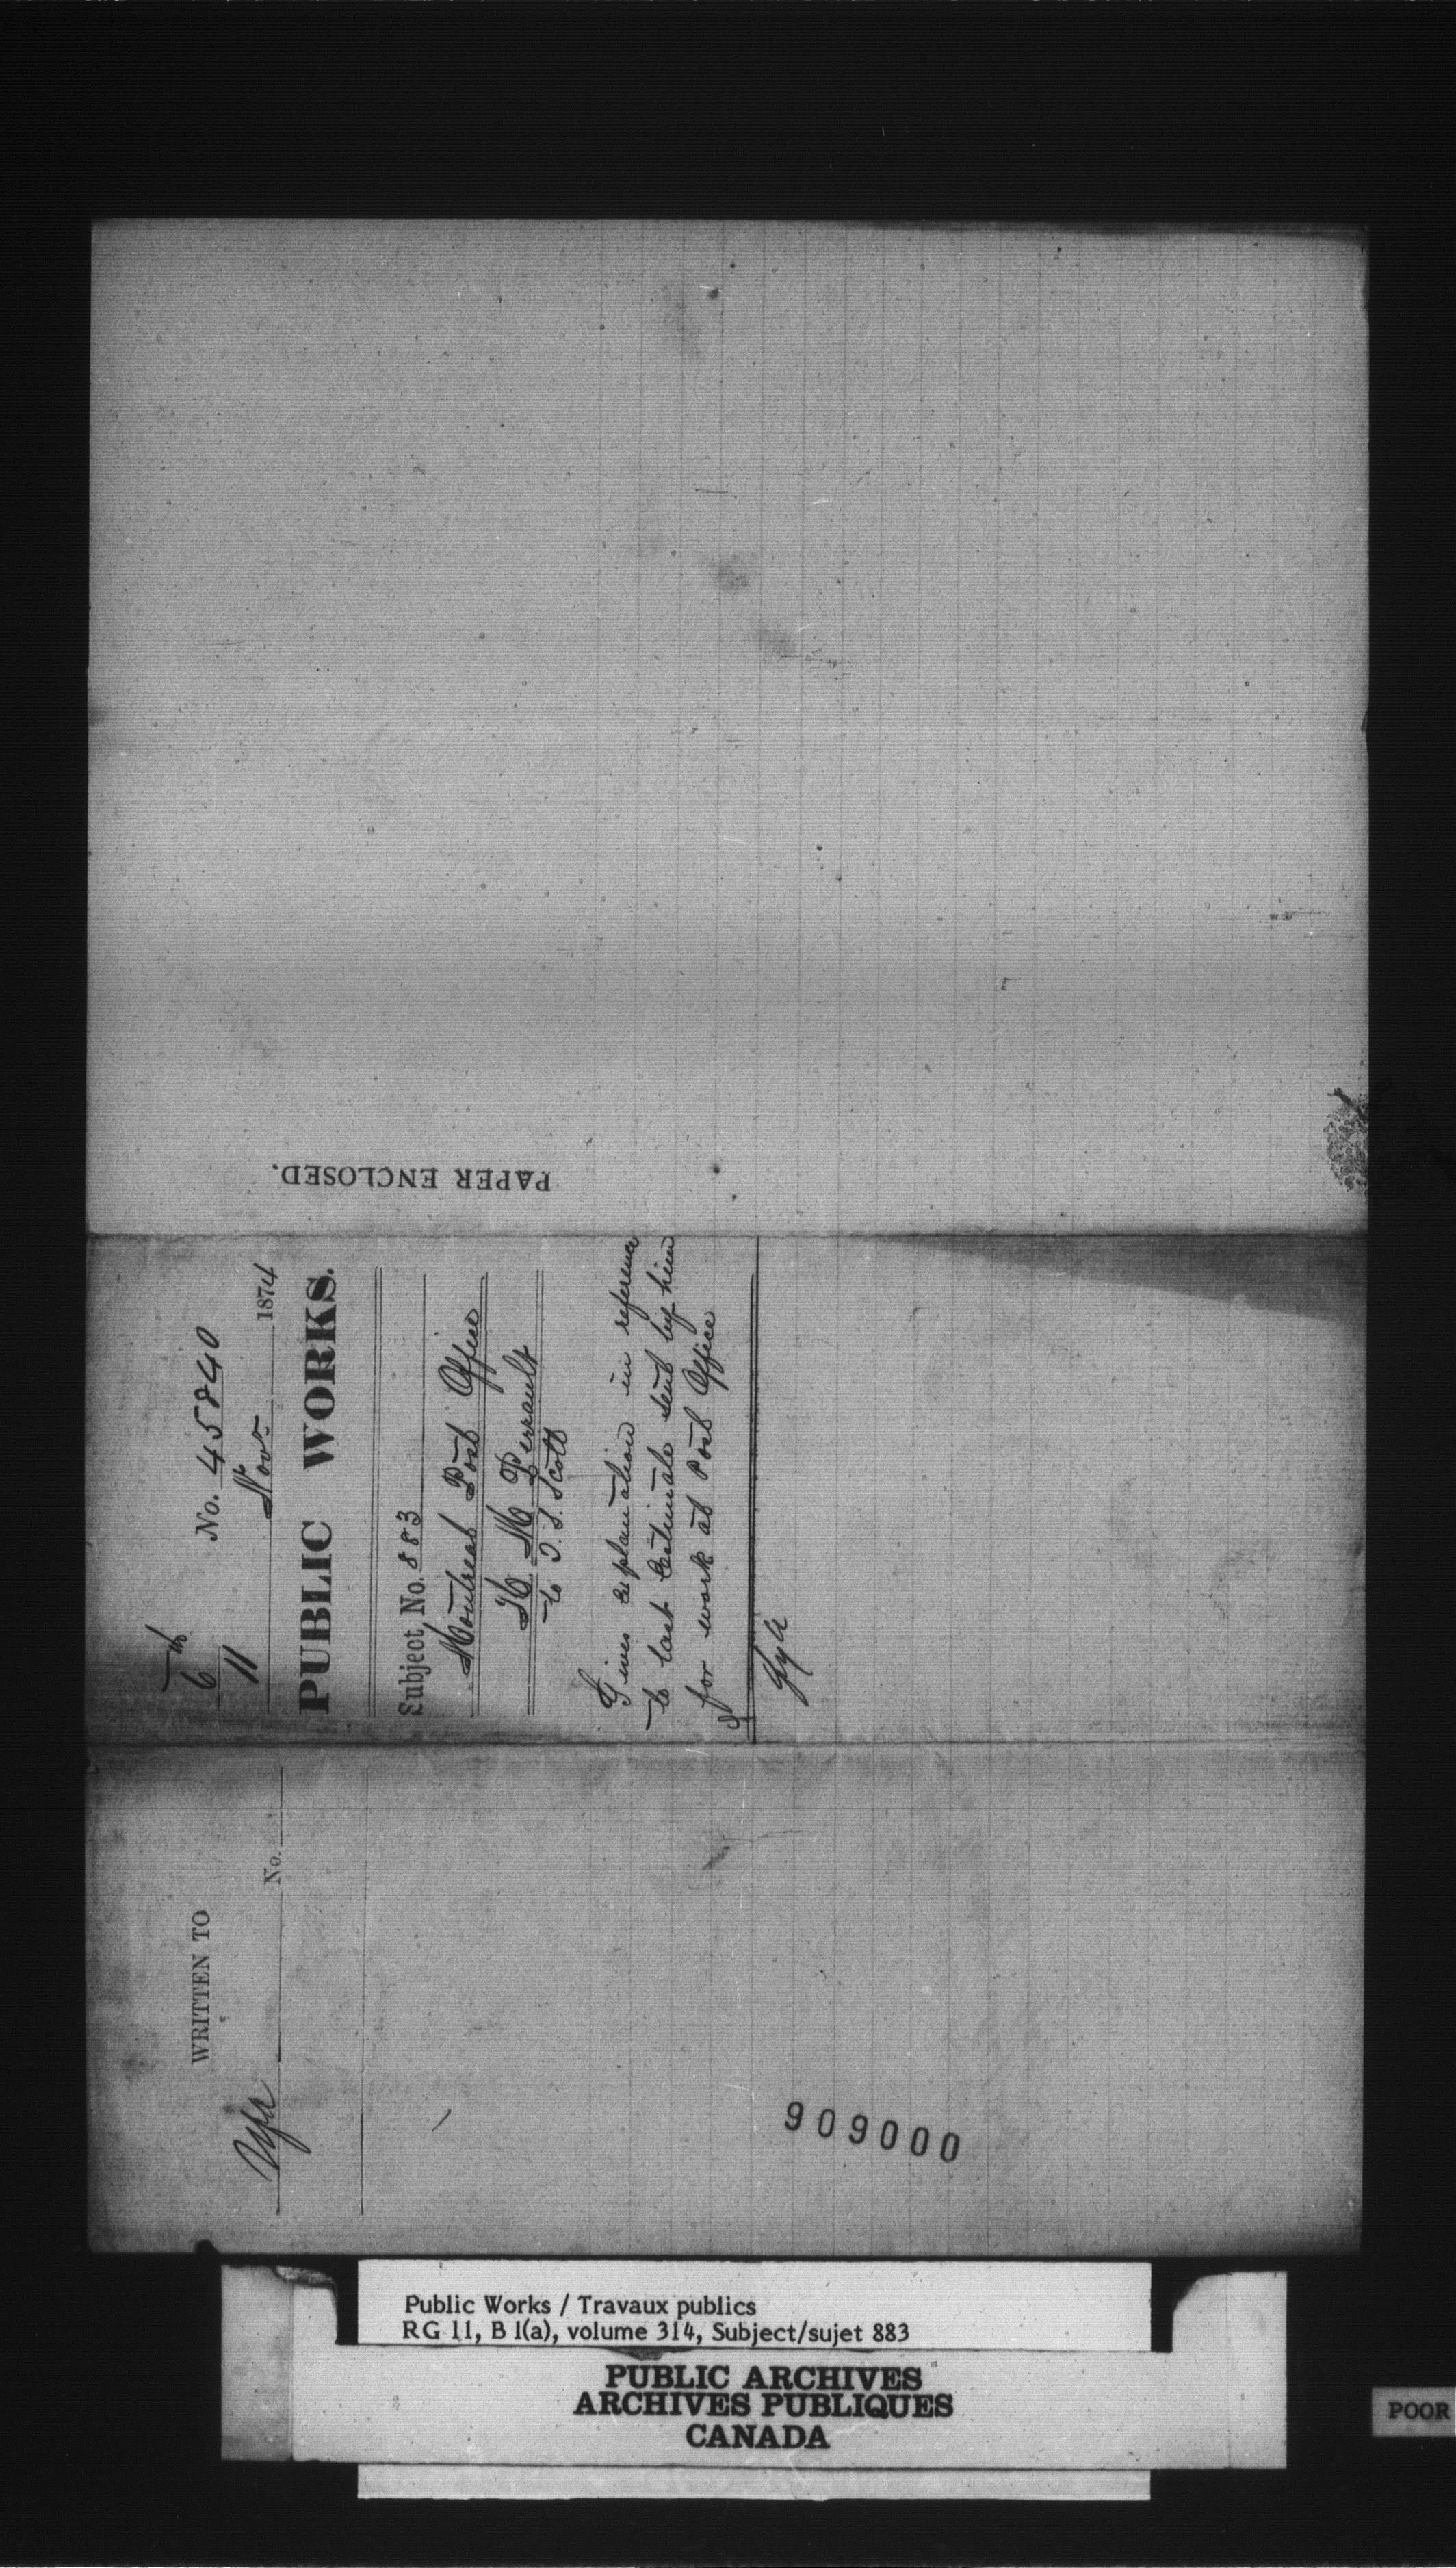 PAPER ENCLOSED.
No. 45840
6th
11 Novr 1874
PUBLIC WORKS.
Subject No. 883
Montreal Post Office
H M Perrault
to T. S. Scott
Gives explanation in reference
to last Estimate sent by him
for work at Post Office
WRITTEN TO
No.
909000
Public Works / Travaux publics
RG 11, B 1(a), volume 314, Subject/sujet 883
PUBLIC ARCHIVES
ARCHIVES PUBLIQUES
CANADA
POOR